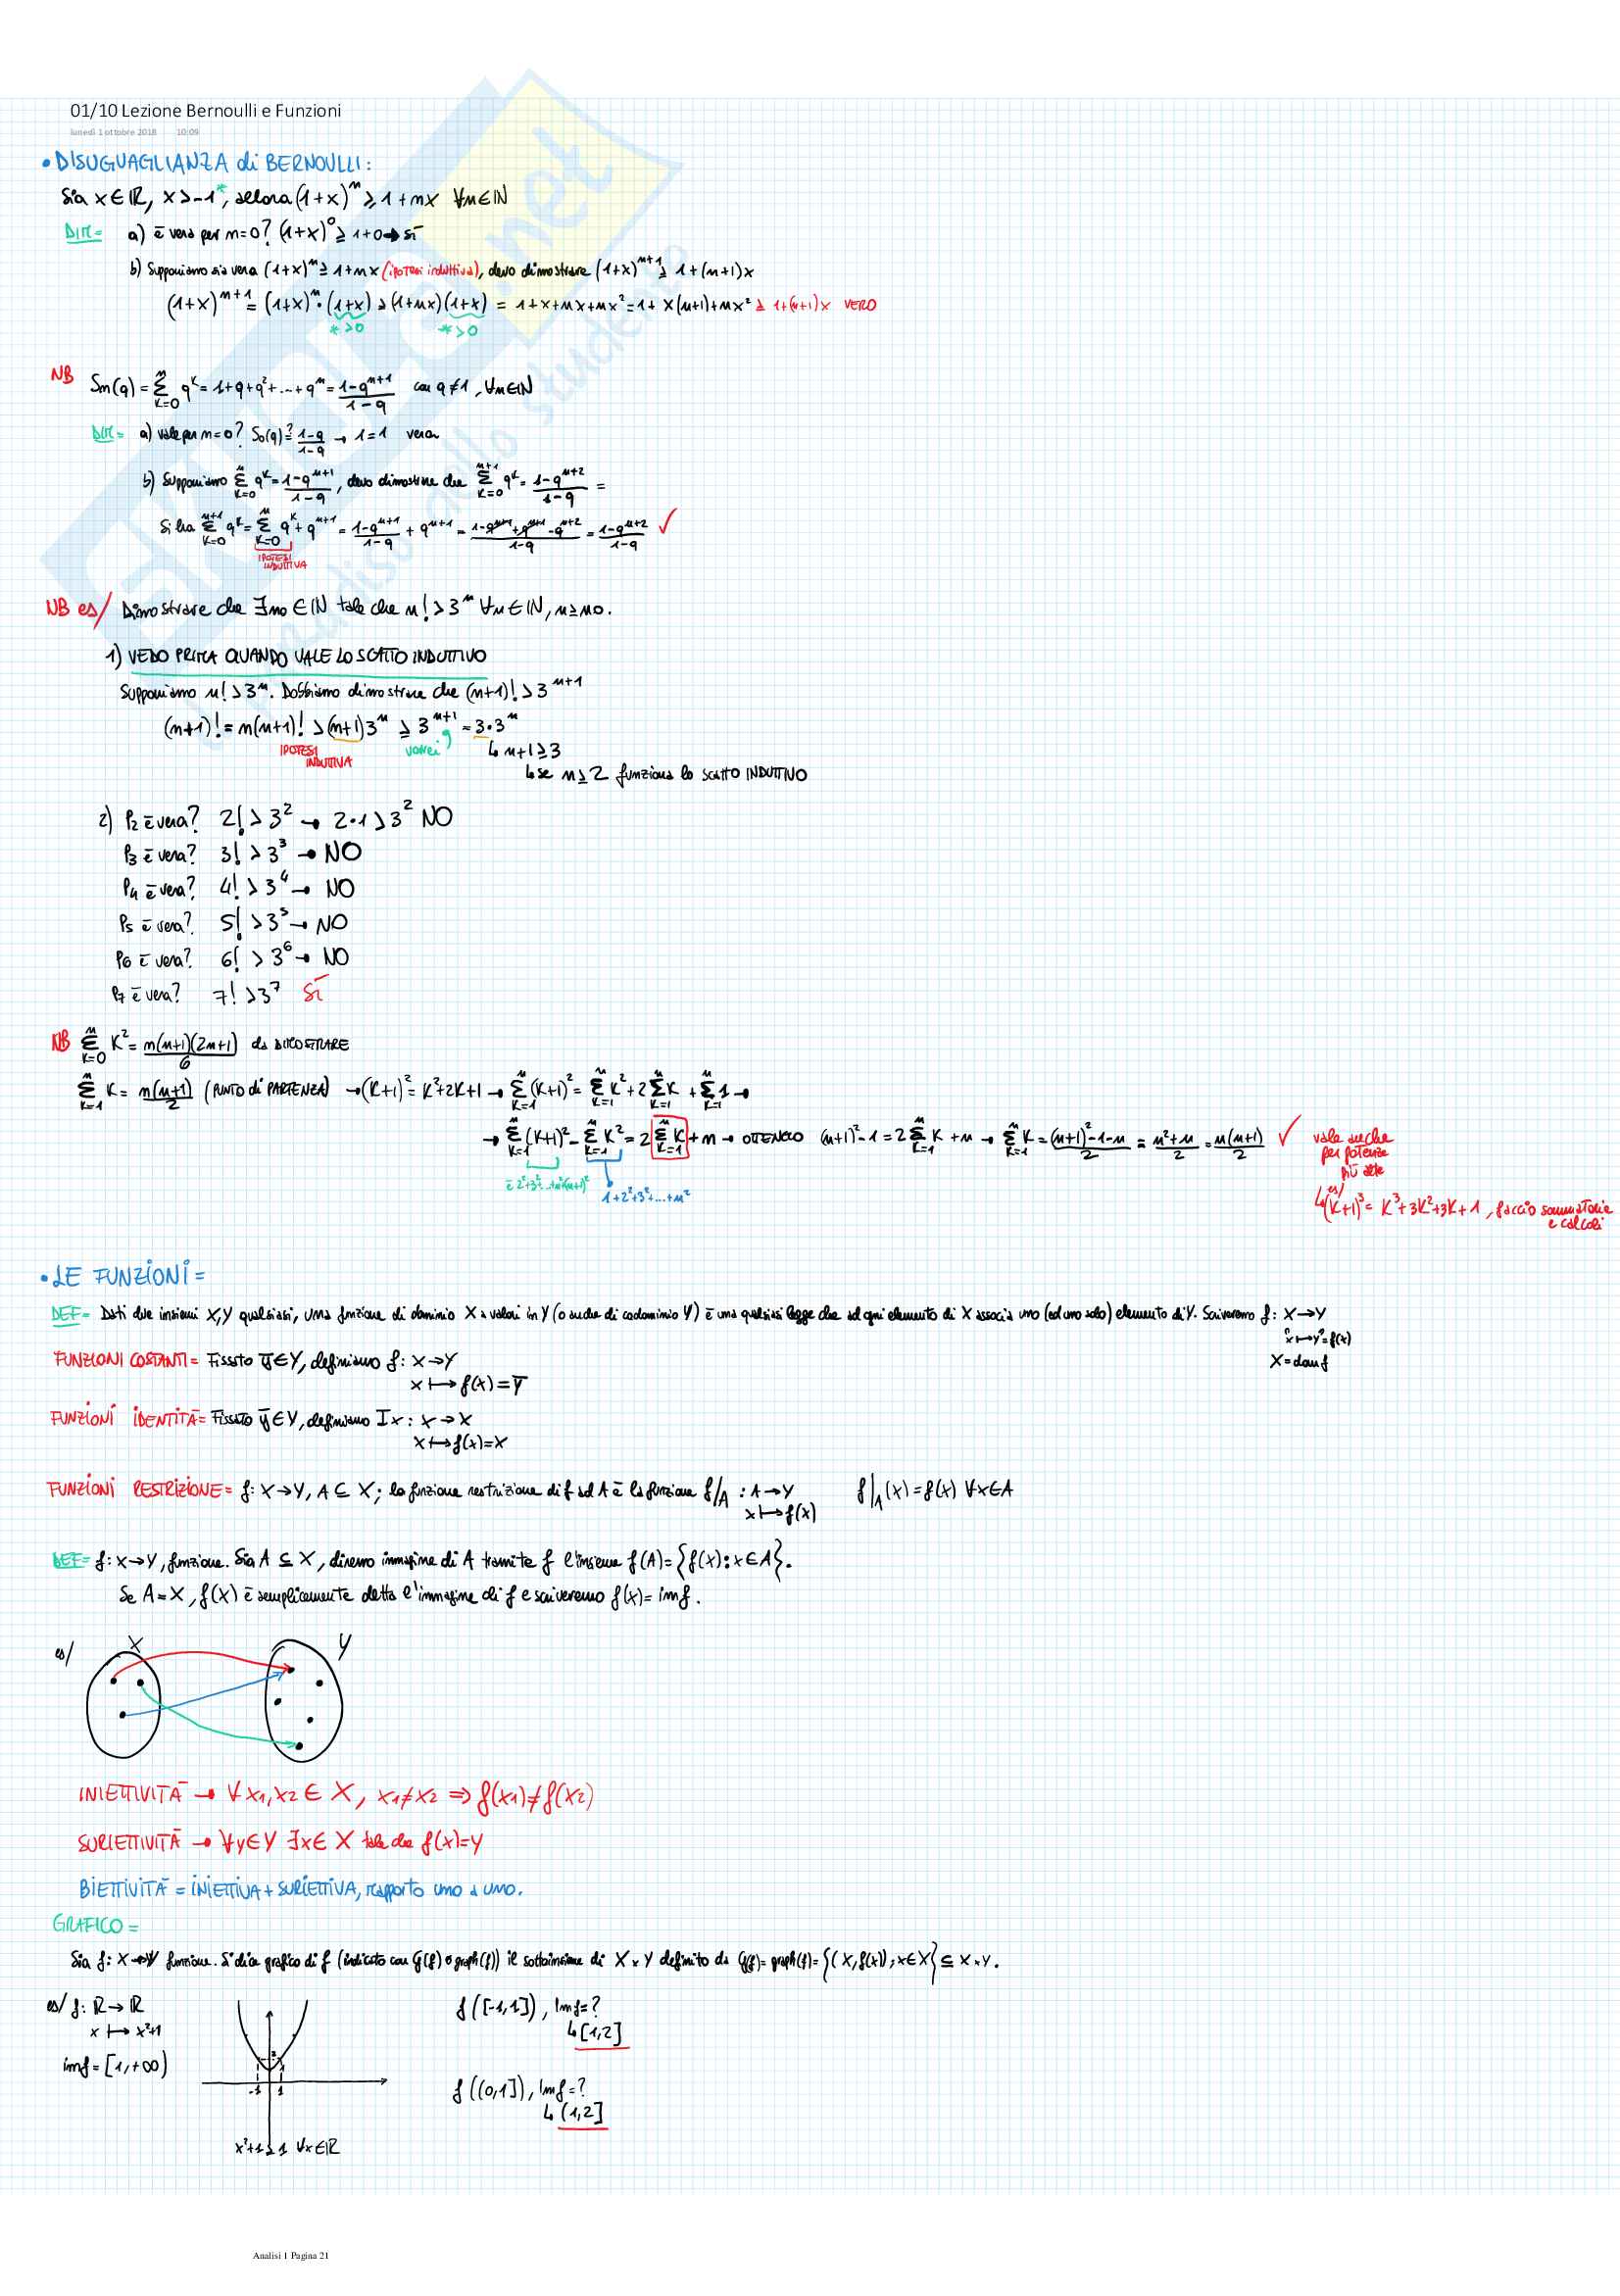 01/10 Lezione Bernoulli e Funzioni
lunedì 1 ottobre 2018 10:09
• DISUGUAGLIANZA di BERNOULLI:
Sia x∈ℝ, x>-1*, allora (1+x)^n ≥ 1+nx ∀n∈ℕ
DIM= a) è vera per n=0? (1+x)^0 ≥ 1+0 → sì
b) Supponiamo sia vera (1+x)^n ≥ 1+nx (ipotesi induttiva), devo dimostrare (1+x)^{n+1} ≥ 1+(n+1)x
(1+x)^{n+1} = (1+x)^n · (1+x) ≥ (1+nx)(1+x) = 1+x+nx+nx² = 1+x(n+1)+nx² ≥ 1+(n+1)x VERO
* >0 * >0
NB Sn(q) = Σ_{k=0}^{n} q^k = 1+q+q²+...+q^n = (1-q^{n+1})/(1-q) con q≠1, ∀n∈ℕ
DIM= a) vale per n=0? S0(q) ?= (1-q)/(1-q) → 1=1 vera
b) Supponiamo Σ_{k=0}^{n} q^k = (1-q^{n+1})/(1-q), devo dimostrare che Σ_{k=0}^{n+1} q^k = (1-q^{n+2})/(1-q) =
Si ha Σ_{k=0}^{n+1} q^k = Σ_{k=0}^{n} q^k + q^{n+1} = (1-q^{n+1})/(1-q) + q^{n+1} = (1-q^{n+1}+q^{n+1}-q^{n+2})/(1-q) = (1-q^{n+2})/(1-q) ✓
IPOTESI
INDUTTIVA
NB es/ Dimostrare che ∃n0∈ℕ tale che n!>3^n ∀n∈ℕ, n≥n0.
1) VEDO PRIMA QUANDO VALE LO SCATTO INDUTTIVO
Supponiamo n!>3^n. Dobbiamo dimostrare che (n+1)!>3^{n+1}
(n+1)! = n(n+1)! > (n+1)3^n ≥ 3^{n+1} = 3·3^n
IPOTESI
INDUTTIVA vorrei ↳ n+1≥3
↳ se n≥2 funziona lo scatto INDUTTIVO
2) P2 è vera? 2!>3² → 2·1>3² NO
P3 è vera? 3!>3³ → NO
P4 è vera? 4!>3⁴ → NO
P5 è vera? 5!>3⁵ → NO
P6 è vera? 6!>3⁶ → NO
P7 è vera? 7!>3⁷ Sì
NB Σ_{k=0}^{n} K² = n(n+1)(2n+1)/6 da DIMOSTRARE
Σ_{k=1}^{n} K = n(n+1)/2 (PUNTO di PARTENZA) → (K+1)² = K²+2K+1 → Σ_{k=1}^{n} (K+1)² = Σ_{k=1}^{n} K² + 2Σ_{k=1}^{n} K + Σ_{k=1}^{n} 1 →
→ Σ_{k=1}^{n} (K+1)² - Σ_{k=1}^{n} K² = 2 Σ_{k=1}^{n} K + n → OTTENGO (n+1)²-1 = 2Σ_{k=1}^{n} K + n → Σ_{k=1}^{n} K = ((n+1)²-1-n)/2 = (n²+n)/2 = n(n+1)/2 ✓ vale anche
per potenze
più alte
è 2²+3²+...+n²+(n+1)² 1+2²+3²+...+n²
es/
↳(K+1)³ = K³+3K²+3K+1, faccio sommatorie
e calcoli
• LE FUNZIONI=
DEF= Dati due insiemi X,Y qualsiasi, una funzione di dominio X a valori in Y (o anche di codominio Y) è una qualsiasi legge che ad ogni elemento di X associa uno (ed uno solo) elemento di Y. Scriveremo f: X→Y
x↦y=f(x)
X=dom f
FUNZIONI COSTANTI= Fissato ȳ∈Y, definiamo f: X→Y
x↦f(x)=ȳ
FUNZIONI IDENTITÀ= Fissato ȳ∈Y, definiamo Ix: X→X
x↦f(x)=x
FUNZIONI RESTRIZIONE= f: X→Y, A⊆X; la funzione restrizione di f ad A è la funzione f|A : A→Y f|A(x)=f(x) ∀x∈A
x↦f(x)
DEF= f: X→Y, funzione. Sia A⊆X, diremo immagine di A tramite f l'insieme f(A)={f(x):x∈A}.
Se A=X, f(X) è semplicemente detta l'immagine di f e scriveremo f(x)=imf.
es/ X Y
INIETTIVITÀ → ∀x1,x2∈X, x1≠x2 ⇒ f(x1)≠f(x2)
SURIETTIVITÀ → ∀y∈Y ∃x∈X tale che f(x)=y
BIETTIVITÀ = INIETTIVA + SURIETTIVA, rapporto uno a uno.
GRAFICO=
Sia f: X→Y funzione. Si dice grafico di f (indicato con G(f) o graph(f)) il sottoinsieme di X×Y definito da G(f)=graph(f)={(x,f(x));x∈X}⊆X×Y.
es/ f: ℝ→ℝ
x↦x²+1
imf=[1,+∞)
2
-1 1
x²+1≥1 ∀x∈ℝ
f([-1,1]), Imf=?
↳[1,2]
f((0,1]), Imf=?
↳(1,2]
Analisi 1 Pagina 21